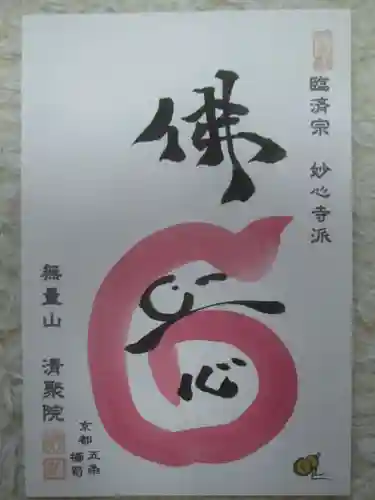 臨済宗 妙心寺派
佛
心
無量山 清聚院
京都 五条